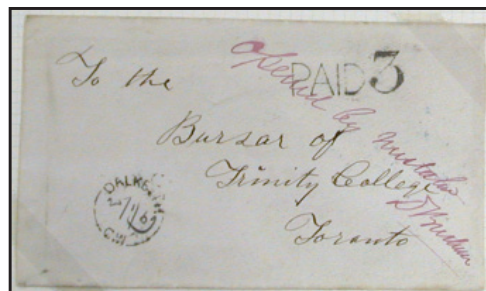 PAID 3
Opened by mistake
To the
Bursar of
Trinity College
Toronto
DALKEITH
C.W